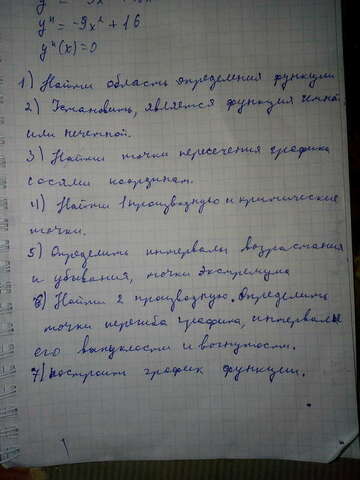 y'' = -9x² + 16
y''(x) = 0
1) Найти область определения функции
2) Установить, является функция четной
или нечетной.
3) Найти точки пересечения графика
с осями координат.
4) Найти 1 производную и критические
точки.
5) Определить интервалы возрастания
и убывания, точки экстремума
6) Найти 2 производную. Определить
точки перегиба графика, интервалы
его выпуклости и вогнутости.
7) построить график функции.